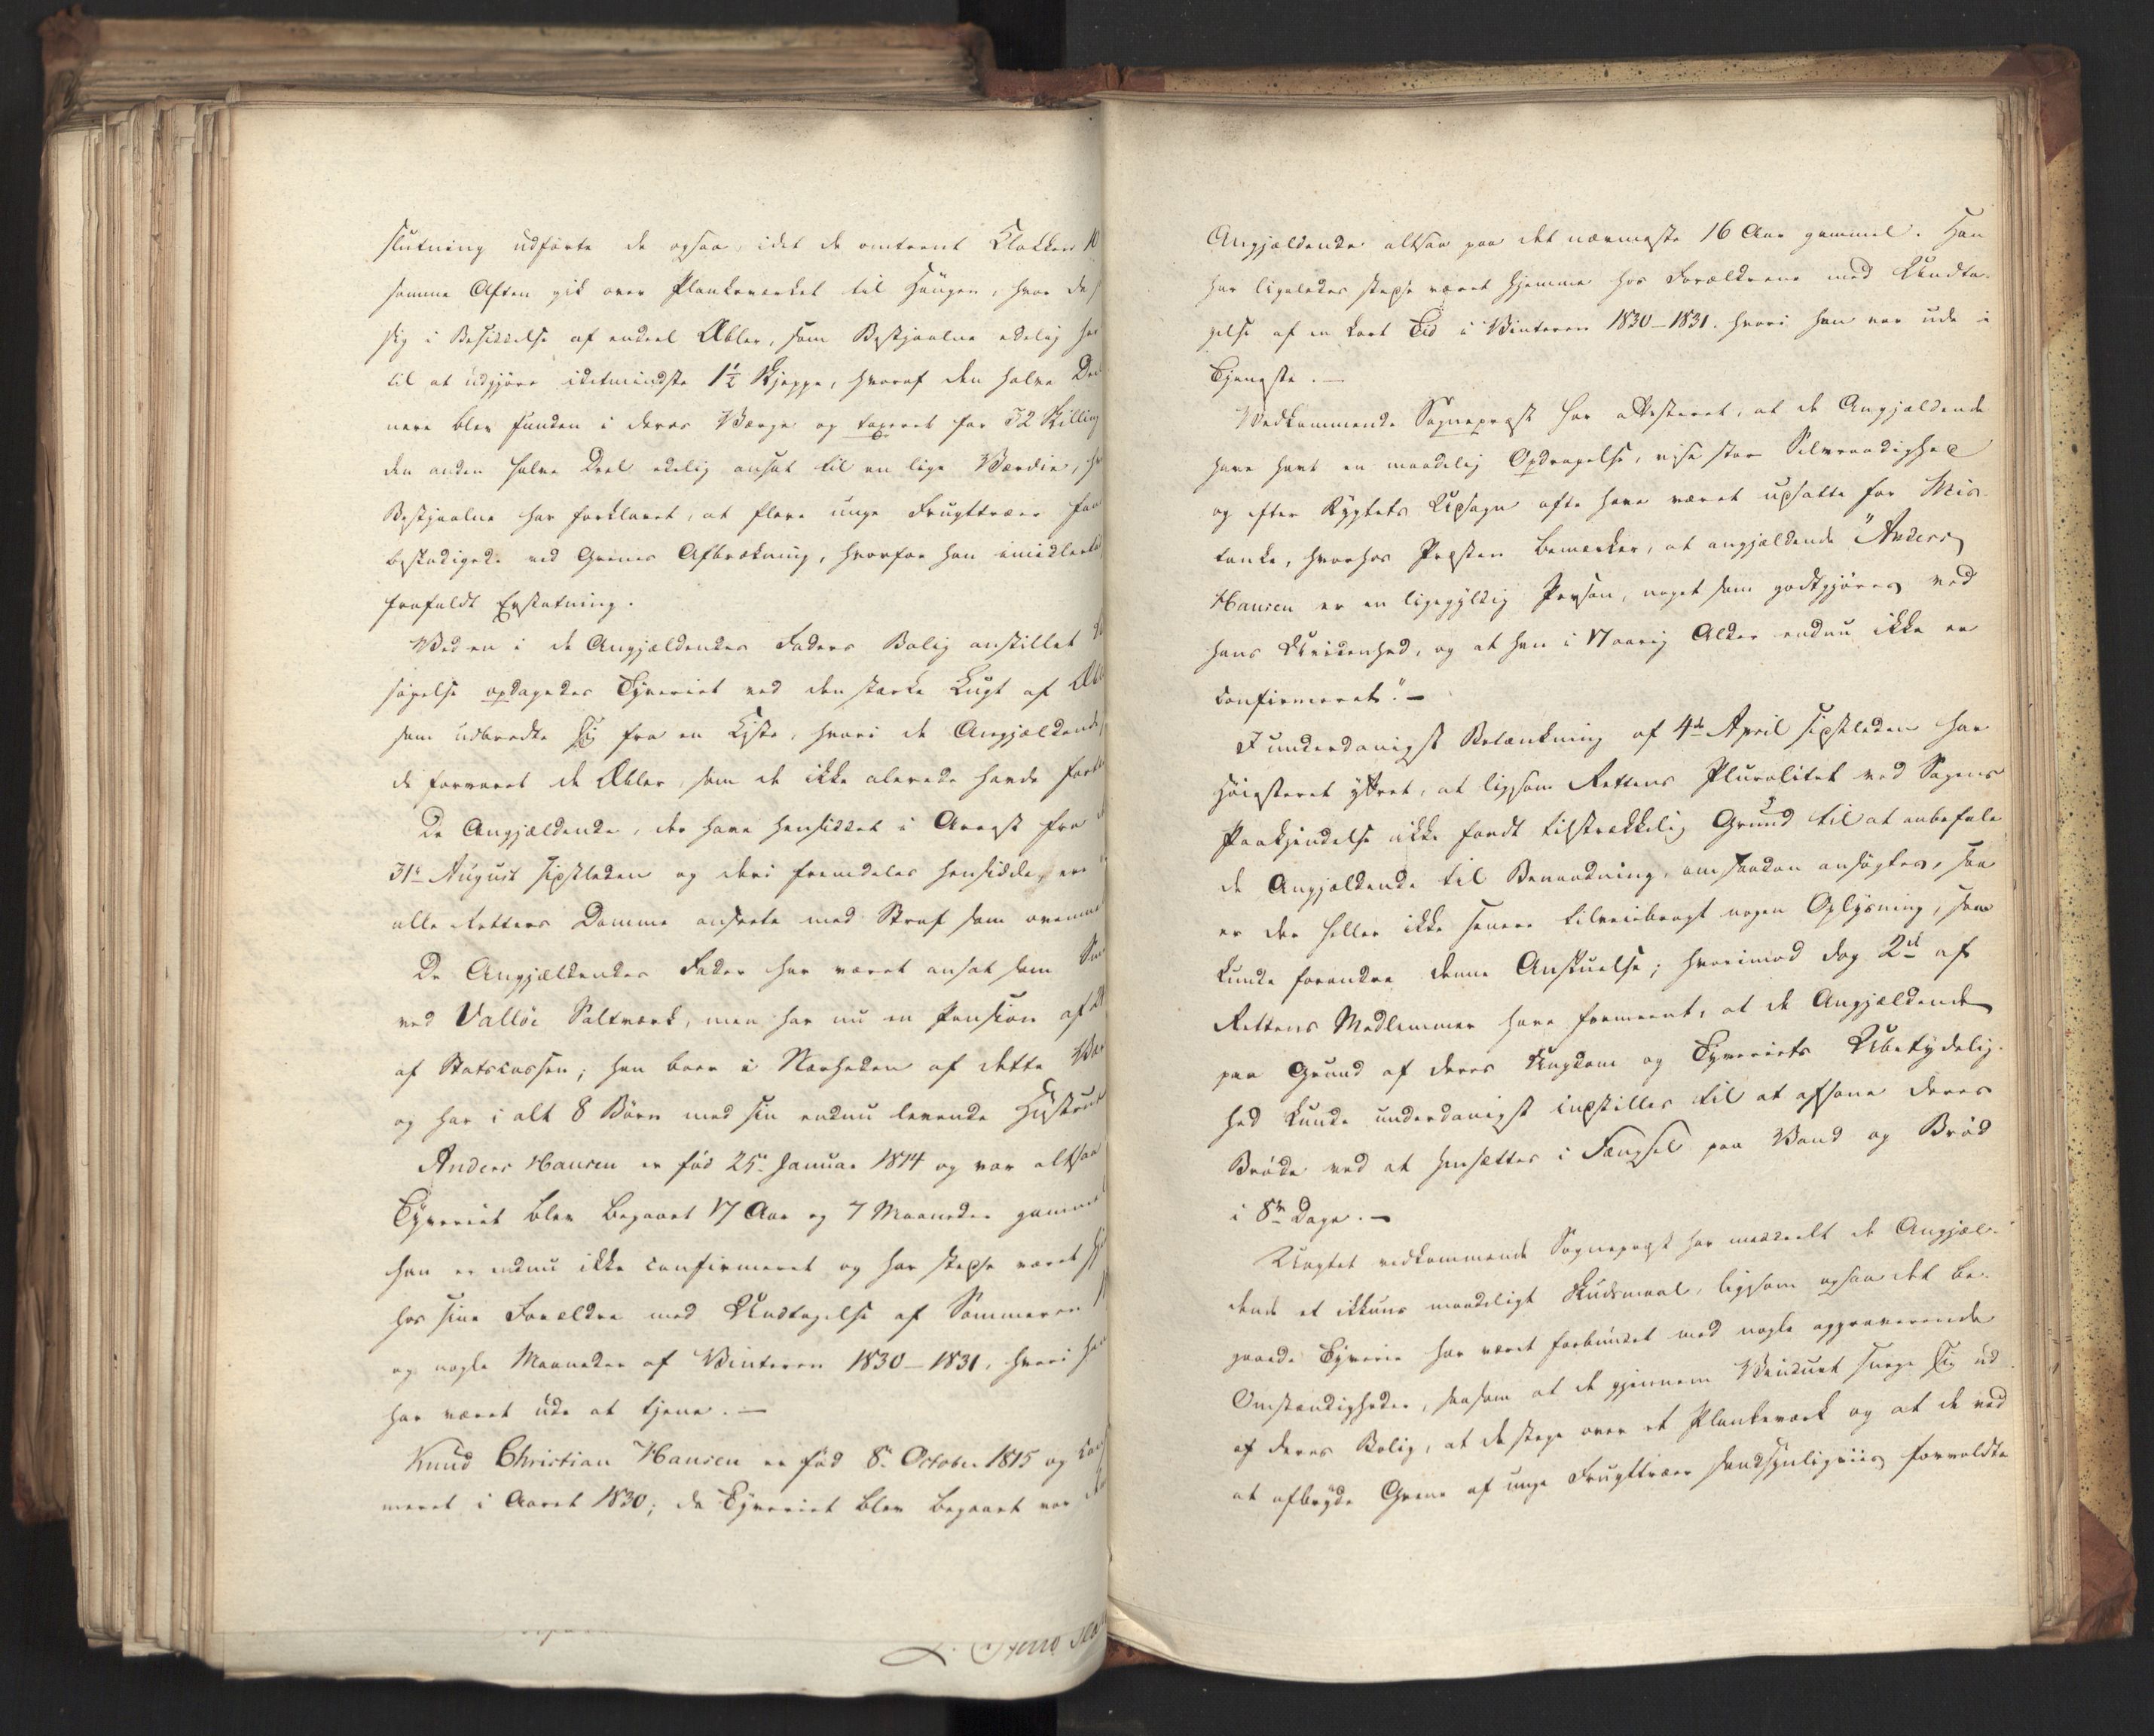 slutning udførte de ogsaa, idet de omtrent Klokken 10
samme Aften gik over Plankeværket til Haugen, hvor de
sig i Besiddelse af endeel Æbler, som Bestjaalne edelig har
til at udgjøre idetmindste 1½ Skjeppe, hvoraf den halve Deel
nere blev funden i deres Værge og taxeret for 32 Skilling
den anden halve Deel edelig ansat til en lige Værdie,
Bestjaalne har forklaret, at flere unge Frugttræer
beskadigede ved Grenes Afbrækning, hvorfor han imidlertid
frafaldt Erstatning.
Ved en i de Angjældendes Faders Bolig anstillet
søgelse opdagedes Tyveriet ved den stærke Lugt af
som udbredte sig fra en Kiste, hvori de Angjældende
de forvaret de Æbler, som de ikke alerede havde
De Angjældende, der have hensiddet i Arrest fra
31te August sidstleden og deri fremdeles hensidde, ere
alle Retters Domme ansete med Straf som ovenme
De Angjældendes Fader har været ansat som
ved Valløe Saltværk, men har nu en Pension af
af Statscassen; han boer i Nærheden af dette
og har i alt 8 Børn med sin endnu levende Hustrue
Anders Hansen er fød 25de Januar 1814 og var altsaa
Tyveriet blev begaaet 17 Aar og 7 Maaneder gammel
han er endnu ikke confirmeret og har stedse været
hos sine Forældre med Undtagelse af Sommeren
og nogle Maaneder af Vinteren 1830–1831, hvori han
har været ude at tjene. –
Knud Christian Hansen er fød 8de October 1815 og
meret i Aaret 1830; da Tyveriet blev begaaet var
Angjældende altsaa paa det nærmeste 16 Aar gammel. Han
har ligeledes stedse været hjemme hos Forældrene med Undta-
gelse af en kort Tid i Vinteren 1830–1831. hvori han var ude i
Tjeneste. –
Vedkommende Sognepræst har attesteret, at de Angjældende
have havt en maadelig Opdragelse, vise stor Selvraadighed
og efter Rygtets Udsagn ofte have været udsatte for Mis-
tanke, hvorhos Præsten bemærker, at angjældende "Anders
Hansen er en ligegyldig Person, noget som godtgjøres ved
hans Uvidenhed, og at han i 17 aarig Alder endnu ikke er
confirmeret." –
I underdanigst Betænkning af 4de April sidstleden har
Høiesteret yttret, at ligesom Rettens Pluralitet ved Sagens
Paakjendelse ikke fandt tilstrækkelig Grund til at anbefale
de Angjældende til Benaadning, om saadan ansøgtes, saa
er der heller ikke senere tilveiebragt nogen Oplysning, som
kunde forandre denne Anskuelse; hvorimod dog 2de af
Rettens Medlemmer have formeent, at de Angjældende
paa Grund af deres Ungdom og Tyveriets Ubetydelig-
hed kunde underdanigst indstilles til at afsone deres
Brøde ved at hensættes i Fængsel paa Vand og Brød
i 8te Dage. –
Uagtet vedkommende Sognepræst har meddeelt de Angjæl-
dende et ikkuns maadeligt Skudsmaal, ligesom ogsaa det be-
gaaede Tyverie har været forbundet med nogle aggraverende
Omstændigheder, saasom at de gjennem Vinduet snege sig ud
af deres Bolig, at de stege over et Plankeværk og at de ved
at afbryde Grene af unge Frugttræer sandsynligviis forvoldte